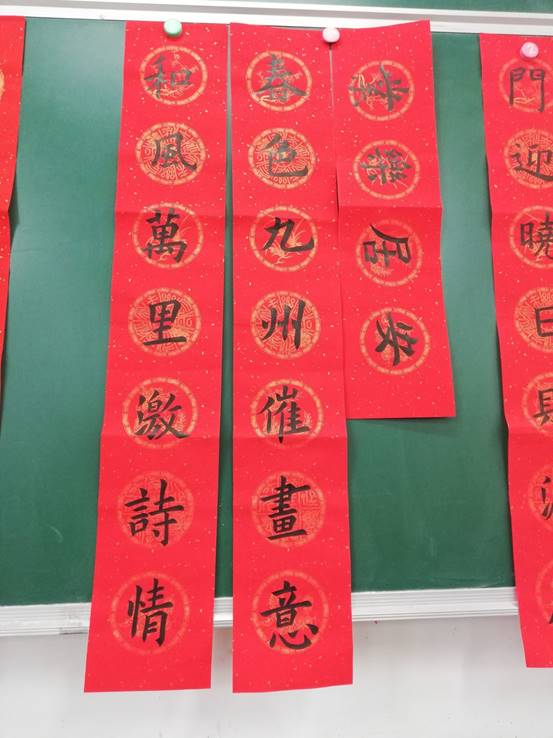 門迎曉日
安居樂業
春色九州催畫意
和風萬里激詩情